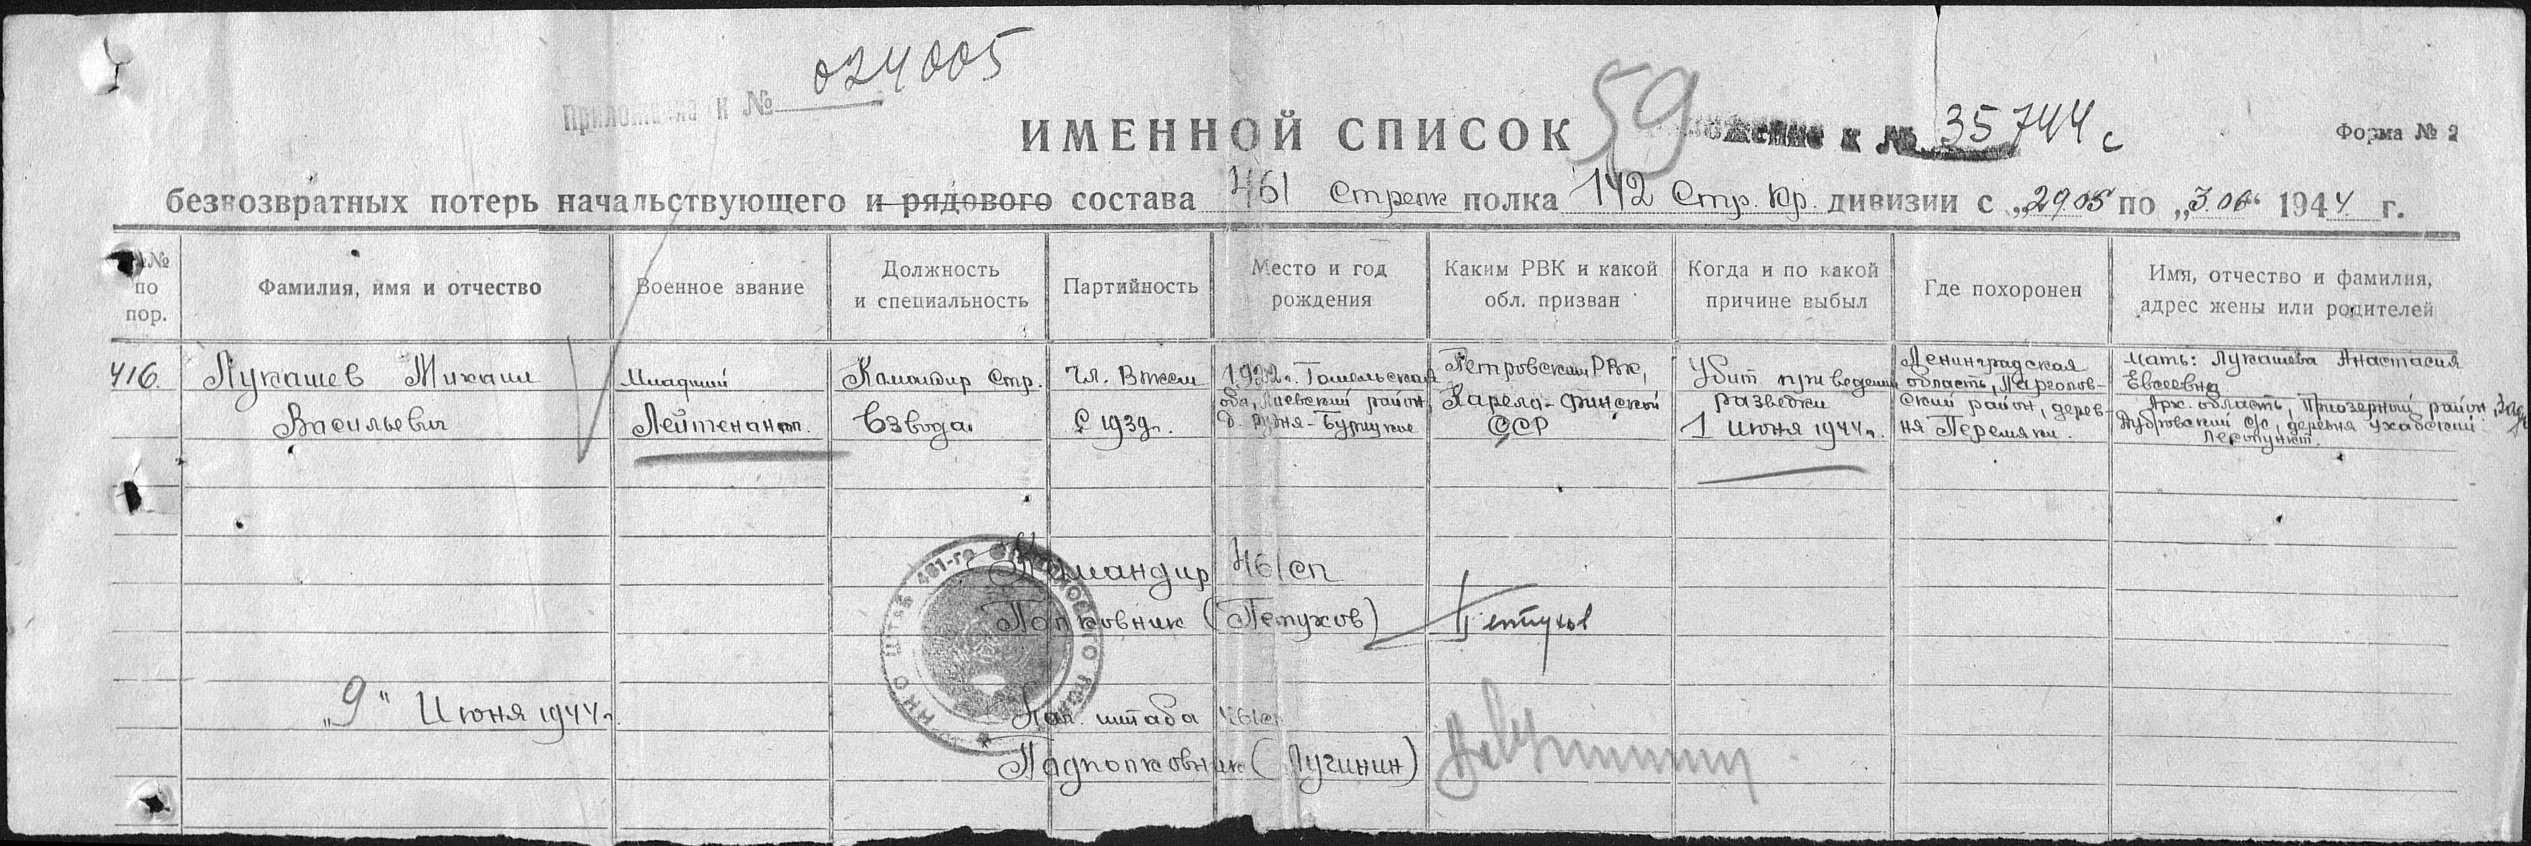 024005
Приложение к №
ИМЕННОЙ СПИСОК
59
к № 35744 с
Форма № 2
безвозвратных потерь начальствующего и рядового состава 461 Стрелк полка 142 Стр. Кр. дивизии с „29.05 по „3.06“ 1944 г.
№№ по пор.
Фамилия, имя и отчество
Военное звание
Должность и специальность
Партийность
Место и год рождения
Каким РВК и какой обл. призван
Когда и по какой причине выбыл
Где похоронен
Имя, отчество и фамилия, адрес жены или родителей
416.
Лукашев Михаил
Васильевич
Младший
Лейтенант
Командир Стр.
Взвода
Чл. ВЛКСМ
с 1939г.
1922г. Гомельская
обл, район,
д.
Петровским РВК,
Карело-Финской
ССР
Убит при ведении
разведки
1 июня 1944г.
Ленинградская
область, Парголов-
ский район, дерев-
ня Перемяки.
мать: Лукашева Анастасия
Евсеевна
Арх. область, Приозерный район,
с/с, деревня
Командир 461 сп
Полковник (Петухов) Петухов
„9“ Июня 1944г.
Нач. штаба 461сп
Подполковник (Лугинин)
НКО ШТАБ 461-го СТРЕЛКОВОГО ПОЛКА